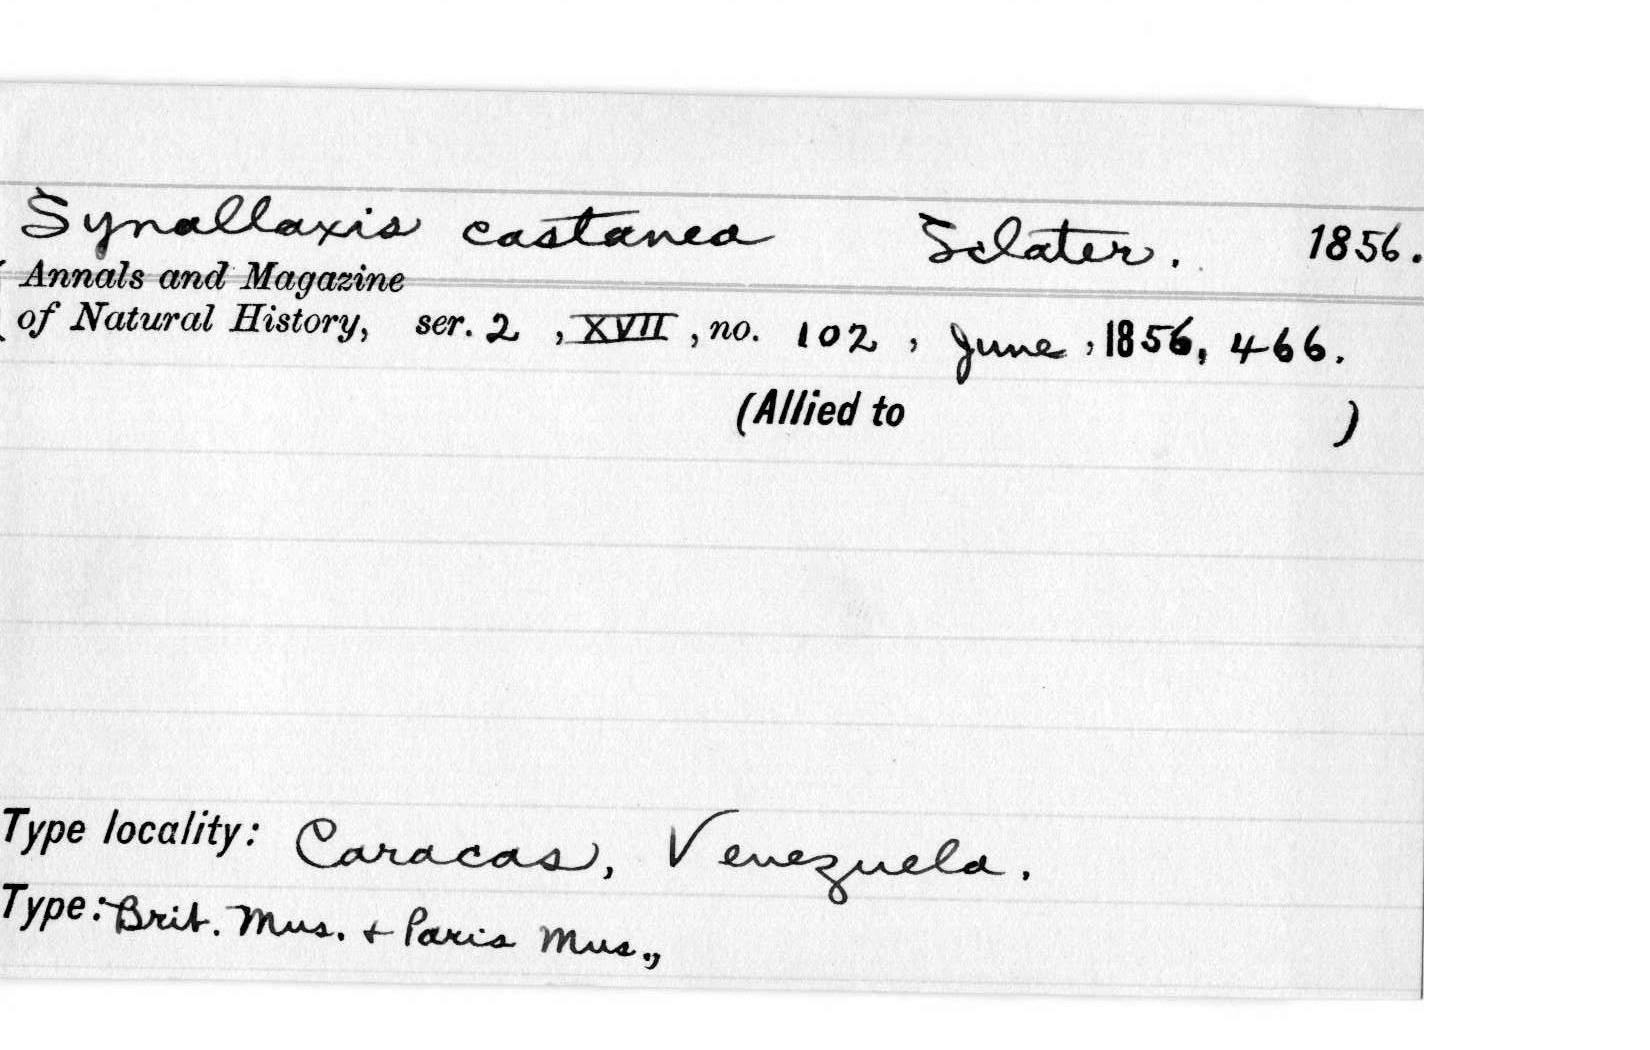 Synallaxis castanea Sclater. 1856.
Annals and Magazine
of Natural History, ser. 2 , XVII , no. 102 , June , 1856, 466.
(Allied to )
Type locality: Caracas, Venezuela.
Type: Brit. Mus. + Paris Mus.,